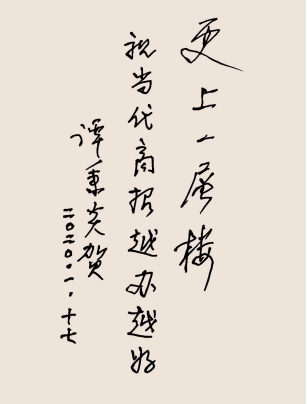 更上一层楼
祝当代商报越办越好
谭秉炎贺
二〇二〇.一.十七